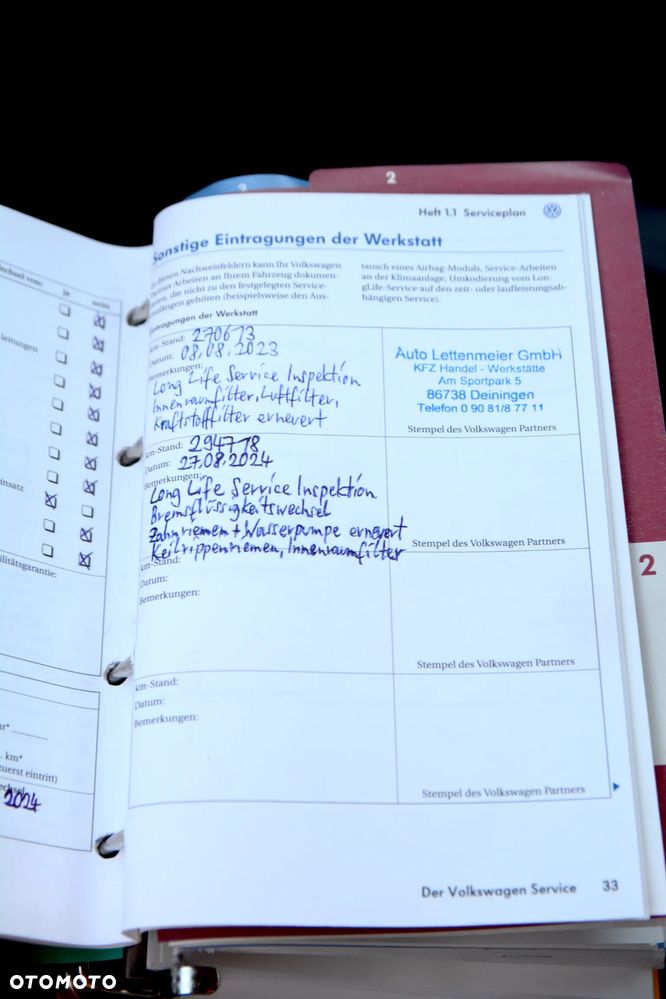 2
2
Heft 1.1 Serviceplan
Sonstige Eintragungen der Werkstatt
diesen Nachweisfeldern kann Ihr Volkswagen
Arbeiten an Ihrem Fahrzeug dokumen-
die nicht zu den festgelegten Service-
gehören (beispielsweise den Aus-
tausch eines Airbag-Moduls, Service-Arbeiten
an der Klimaanlage, Umkodierung vom Lon-
gLife-Service auf den zeit- oder laufleistungsab-
hängigen Service).
Eintragungen der Werkstatt
km-Stand: 270613
Datum: 08.08.2023
Bemerkungen:
Long Life Service Inspektion
Innenraumfilter, Luftfilter,
Kraftstofffilter erneuert
Auto Lettenmeier GmbH
KFZ Handel - Werkstätte
Am Sportpark 5
86738 Deiningen
Telefon 0 90 81/8 77 11
Stempel des Volkswagen Partners
km-Stand: 294718
Datum: 27.08.2024
Bemerkungen:
Long Life Service Inspektion
Bremsflüssigkeitswechsel
Zahnriemen + Wasserpumpe erneuert
Keilrippenriemen, Innenraumfilter
Stempel des Volkswagen Partners
km-Stand:
Datum:
Bemerkungen:
Stempel des Volkswagen Partners
km-Stand:
Datum:
Bemerkungen:
Stempel des Volkswagen Partners
Der Volkswagen Service 33
2
ja nein
leitungen
km*
2024
OTOMOTO